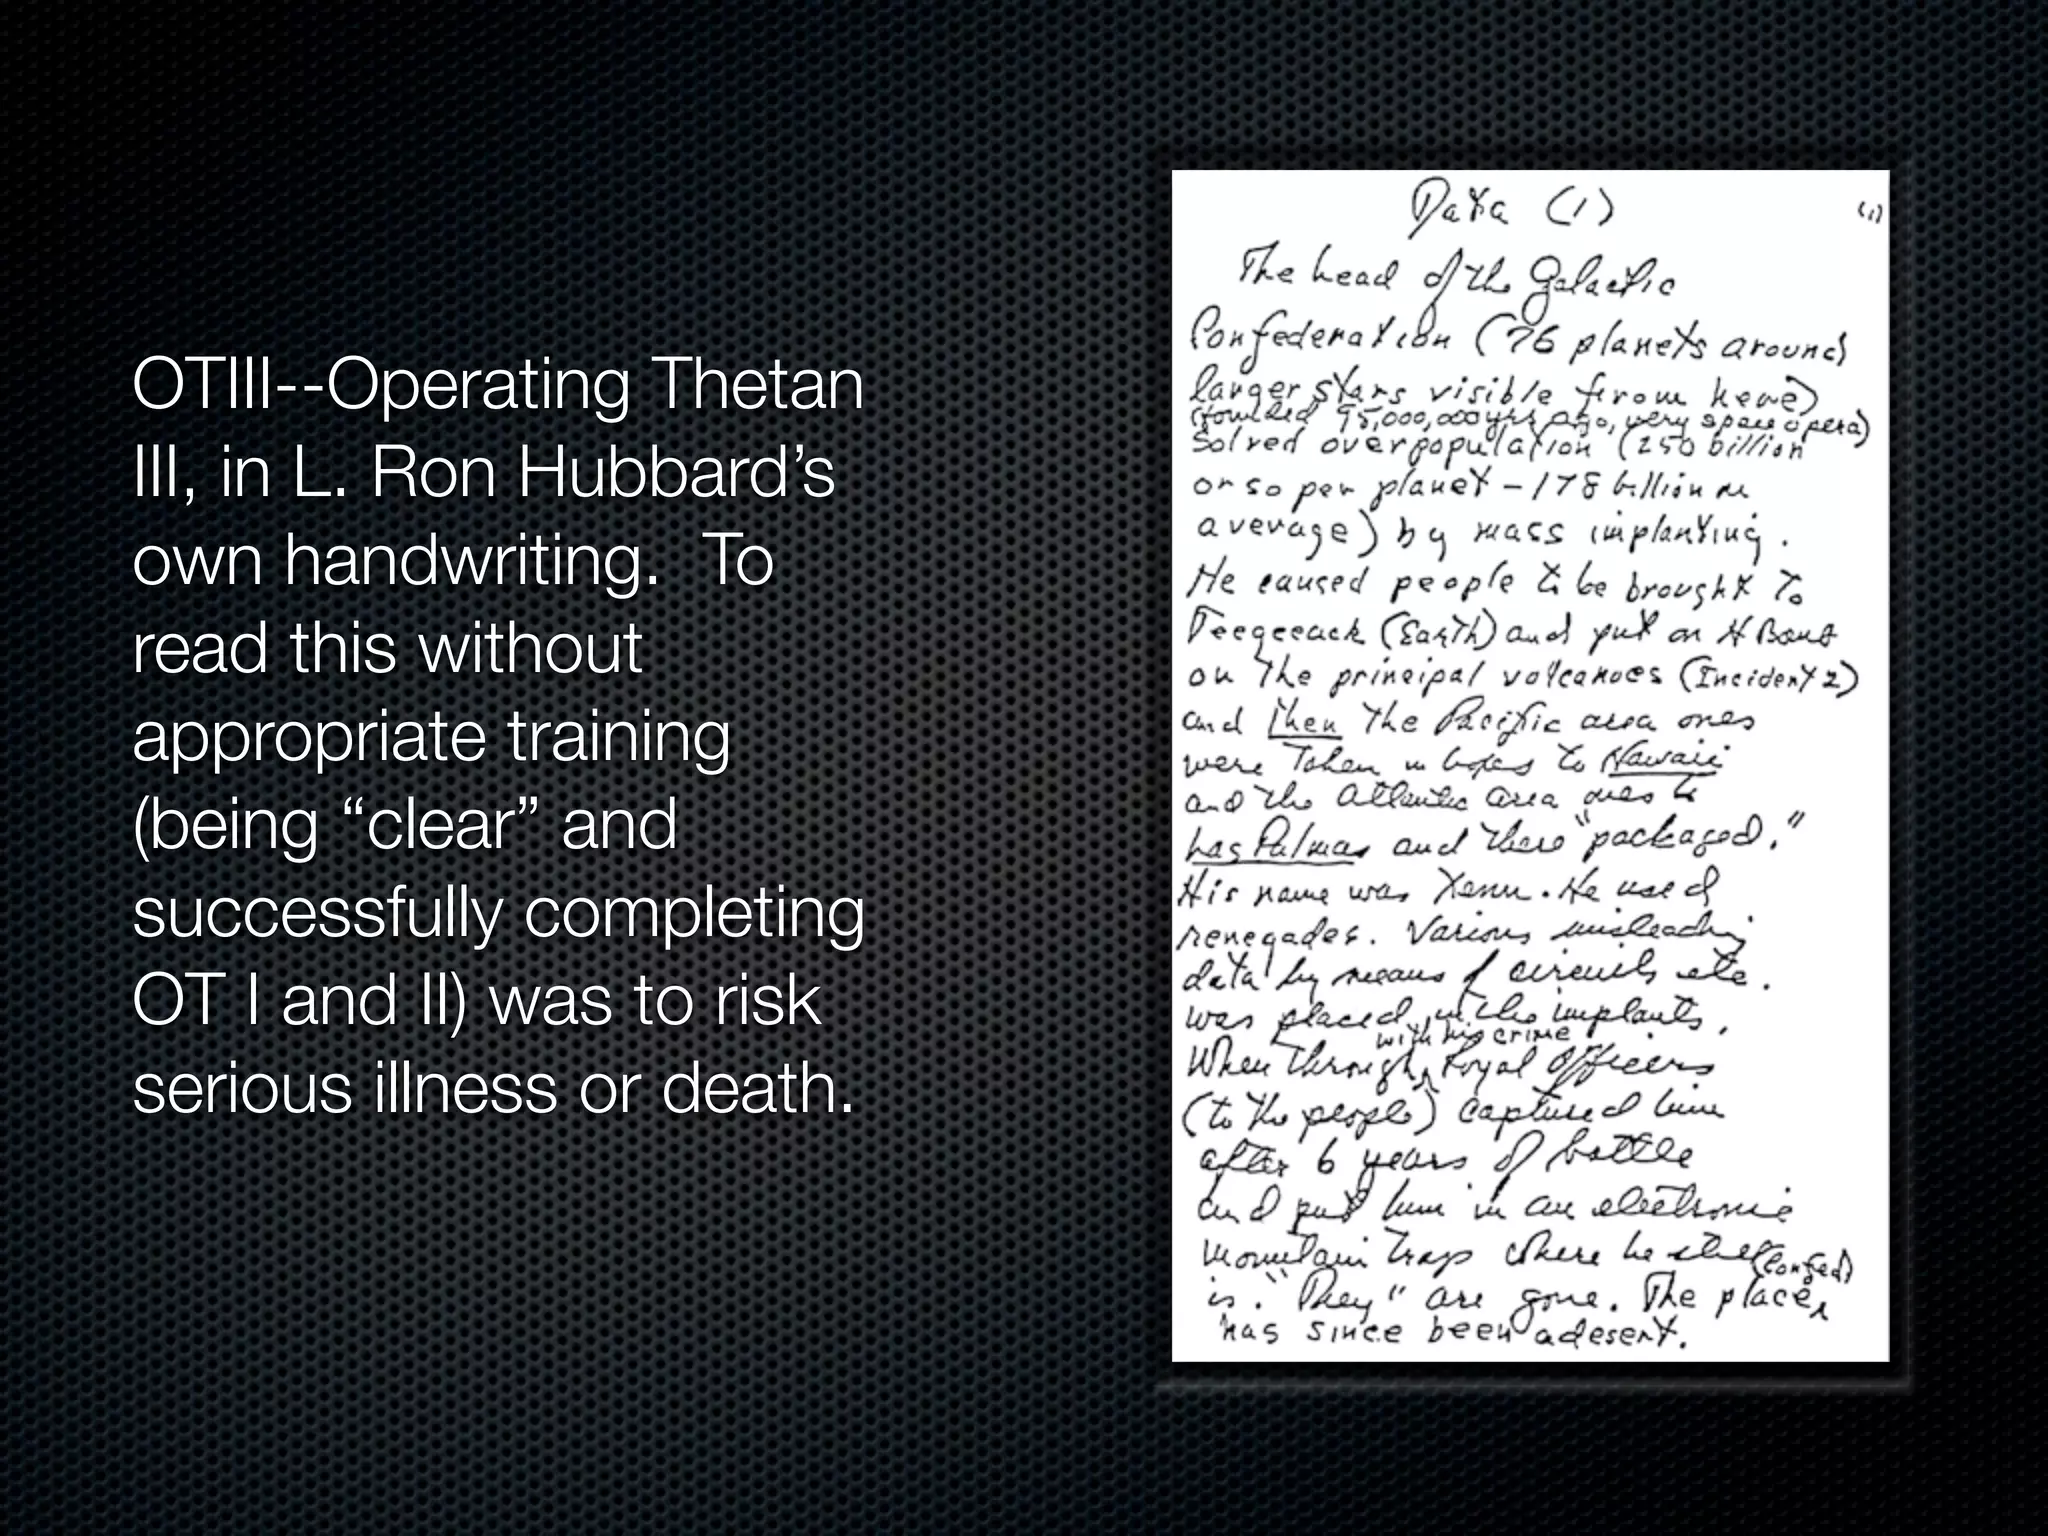 OTIII--Operating Thetan
III, in L. Ron Hubbard’s
own handwriting.  To
read this without
appropriate training
(being “clear” and
successfully completing
OT I and II) was to risk
serious illness or death.
Data (1)
(1)
The head of the Galactic
Confederation (76 planets around
larger stars visible from here)
(founded 95,000,000 yrs ago, very space opera)
solved overpopulation (250 billion
or so per planet – 178 billion on
average) by mass implanting.
He caused people to be brought to
Teegeeack (Earth) and put an H Bomb
on the principal volcanoes (Incident 2)
and then the Pacific area ones
were taken in boxes to Hawaii
and the Atlantic area ones to
Las Palmas and there "packaged."
His name was Xenu. He used
renegades. Various misleading
data by means of circuits etc.
was placed in the implants.
with his crime
When through Loyal Officers
(to the people) captured him
after 6 years of battle
and put him in an electronic
mountain trap where he still
is. "They" are gone. The place (Confed)
has since been a desert.